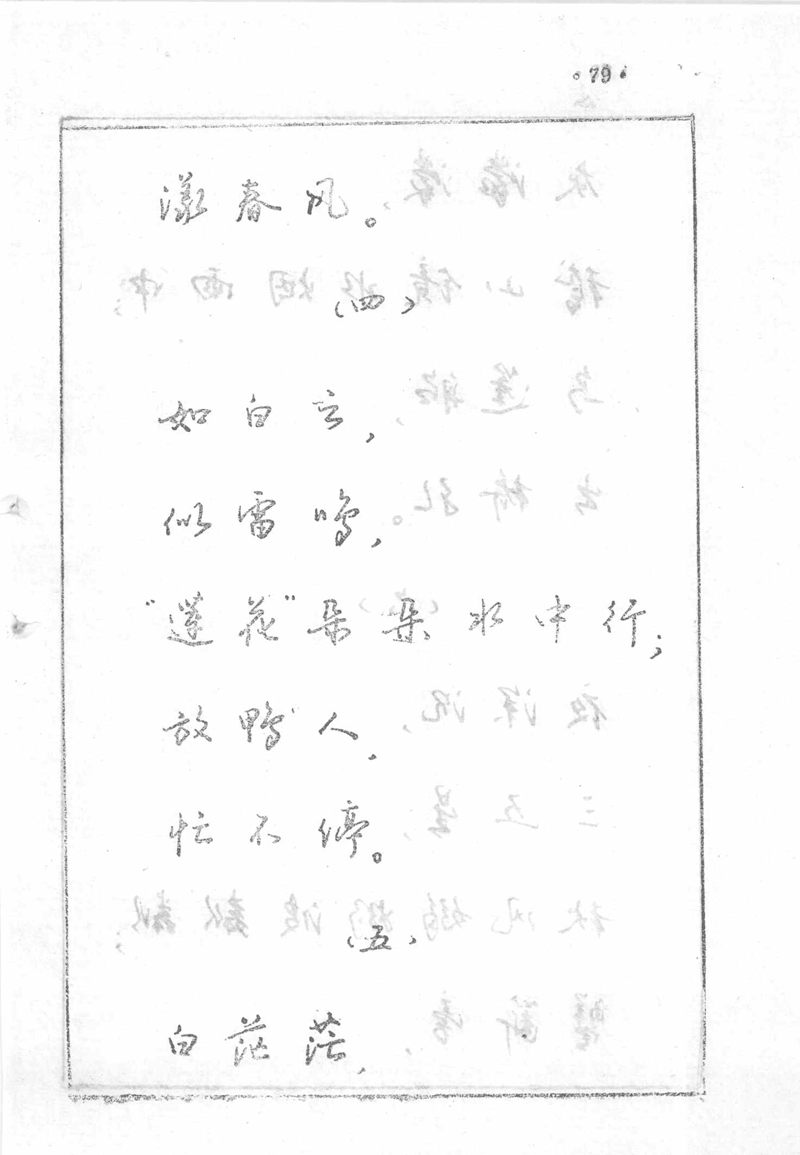 ·79·
漾春风。
（四）
如白云，
似雷鸣，
“莲花”朵朵水中行；
放鸭人，
忙不停。
（五）
白茫茫，